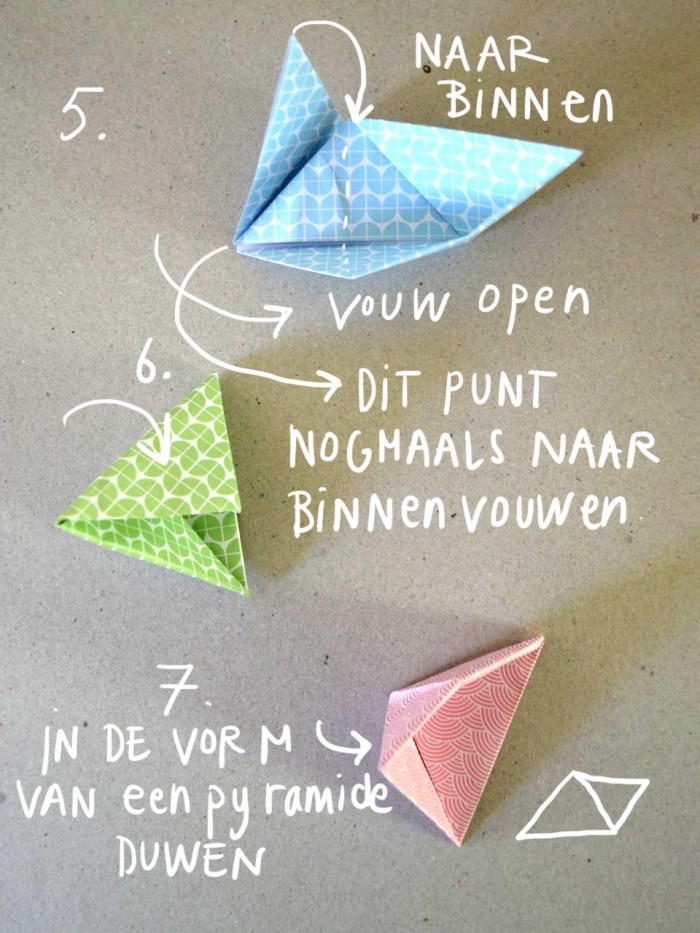 5.
NAAR
BINNEN
VOUW OPEN
6.
DIT PUNT
NOGMAALS NAAR
BINNENVOUWEN
7.
IN DE VORM
VAN een pyramide
DUWEN